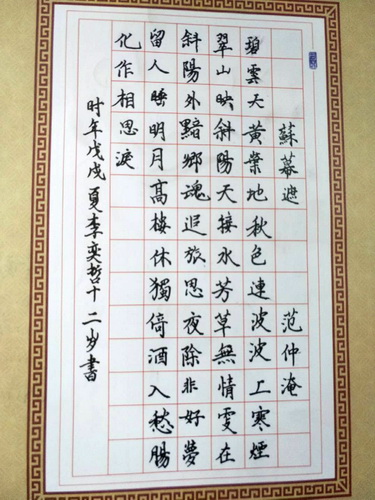 蘇幕遮 范仲淹
碧雲天黄葉地秋色連波波上寒煙
翠山映斜陽天接水芳草無情更在
斜陽外黯鄉魂追旅思夜除非好夢
留人睡明月高樓休獨倚酒入愁腸
化作相思淚
时年戊戌夏李奕哲十二岁書